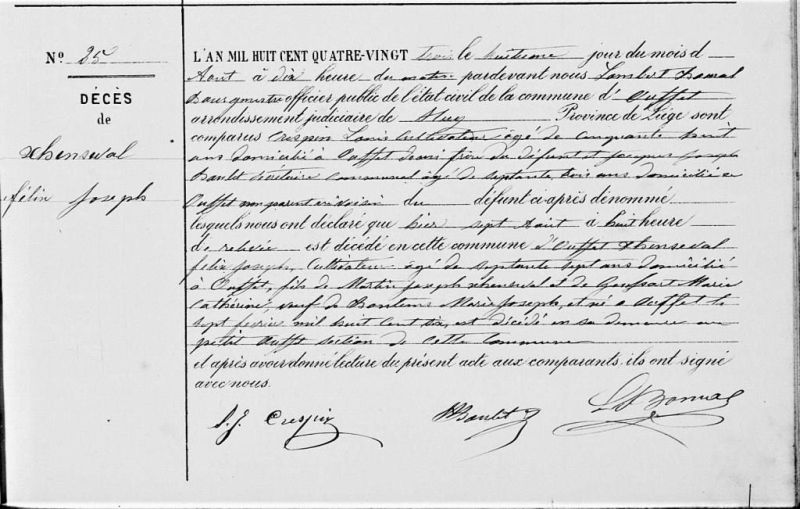 N° 25
DÉCÈS
de
Xhenseval
félix Joseph
L'AN MIL HUIT CENT QUATRE-VINGT trois le huitieme jour du mois d
Aout à dix heure du matin pardevant nous Lambert Bonal
Bourgmestre officier public de l'état civil de la commune d'Ouffet
arrondissement judiciaire de Huy Province de Liége sont
comparus Crespin Louis Cultivateur agé de Cinquante huit
ans domicilié à Ouffet du défunt et Jacques Joseph
Baulet Sécrétaire Communal agé de septante trois ans domicilié a
Ouffet non parent voisin du défunt ci-après dénommé
lesquels nous ont déclaré que hier sept Aout à huit heure
de relevée est décédé en cette commune d'Ouffet Xhenseval
félix Joseph, Cultivateur agé de septante sept ans domicilié
à Ouffet, fils de Martin Joseph Xhenseval et de Marie
Catherine, veuf de Marie Joseph, et né a Ouffet le
sept février mil huit cent six, est décédé en sa demeure au
petit Ouffet section de Cette Commune
et après avoir donné lecture du présent acte aux comparants, ils ont signé
avec nous.
Crespin Baulet